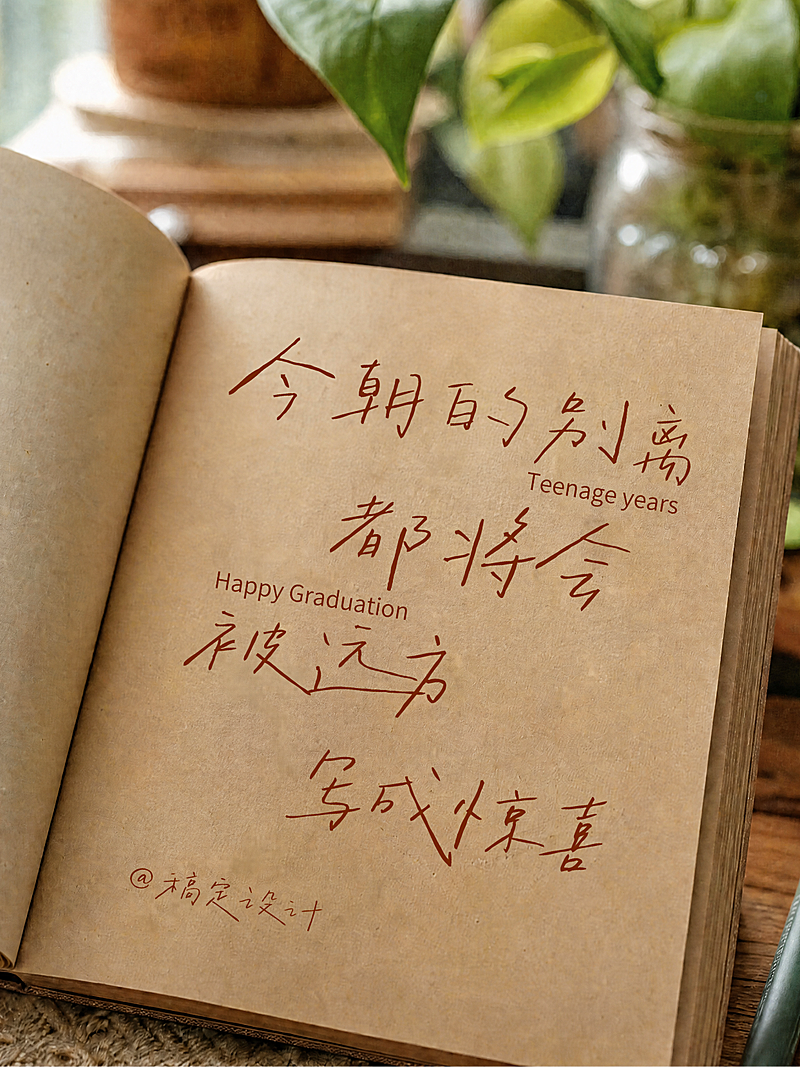 今朝的别离
Teenage years
都将会
Happy Graduation
被远方
写成惊喜
@稿定设计